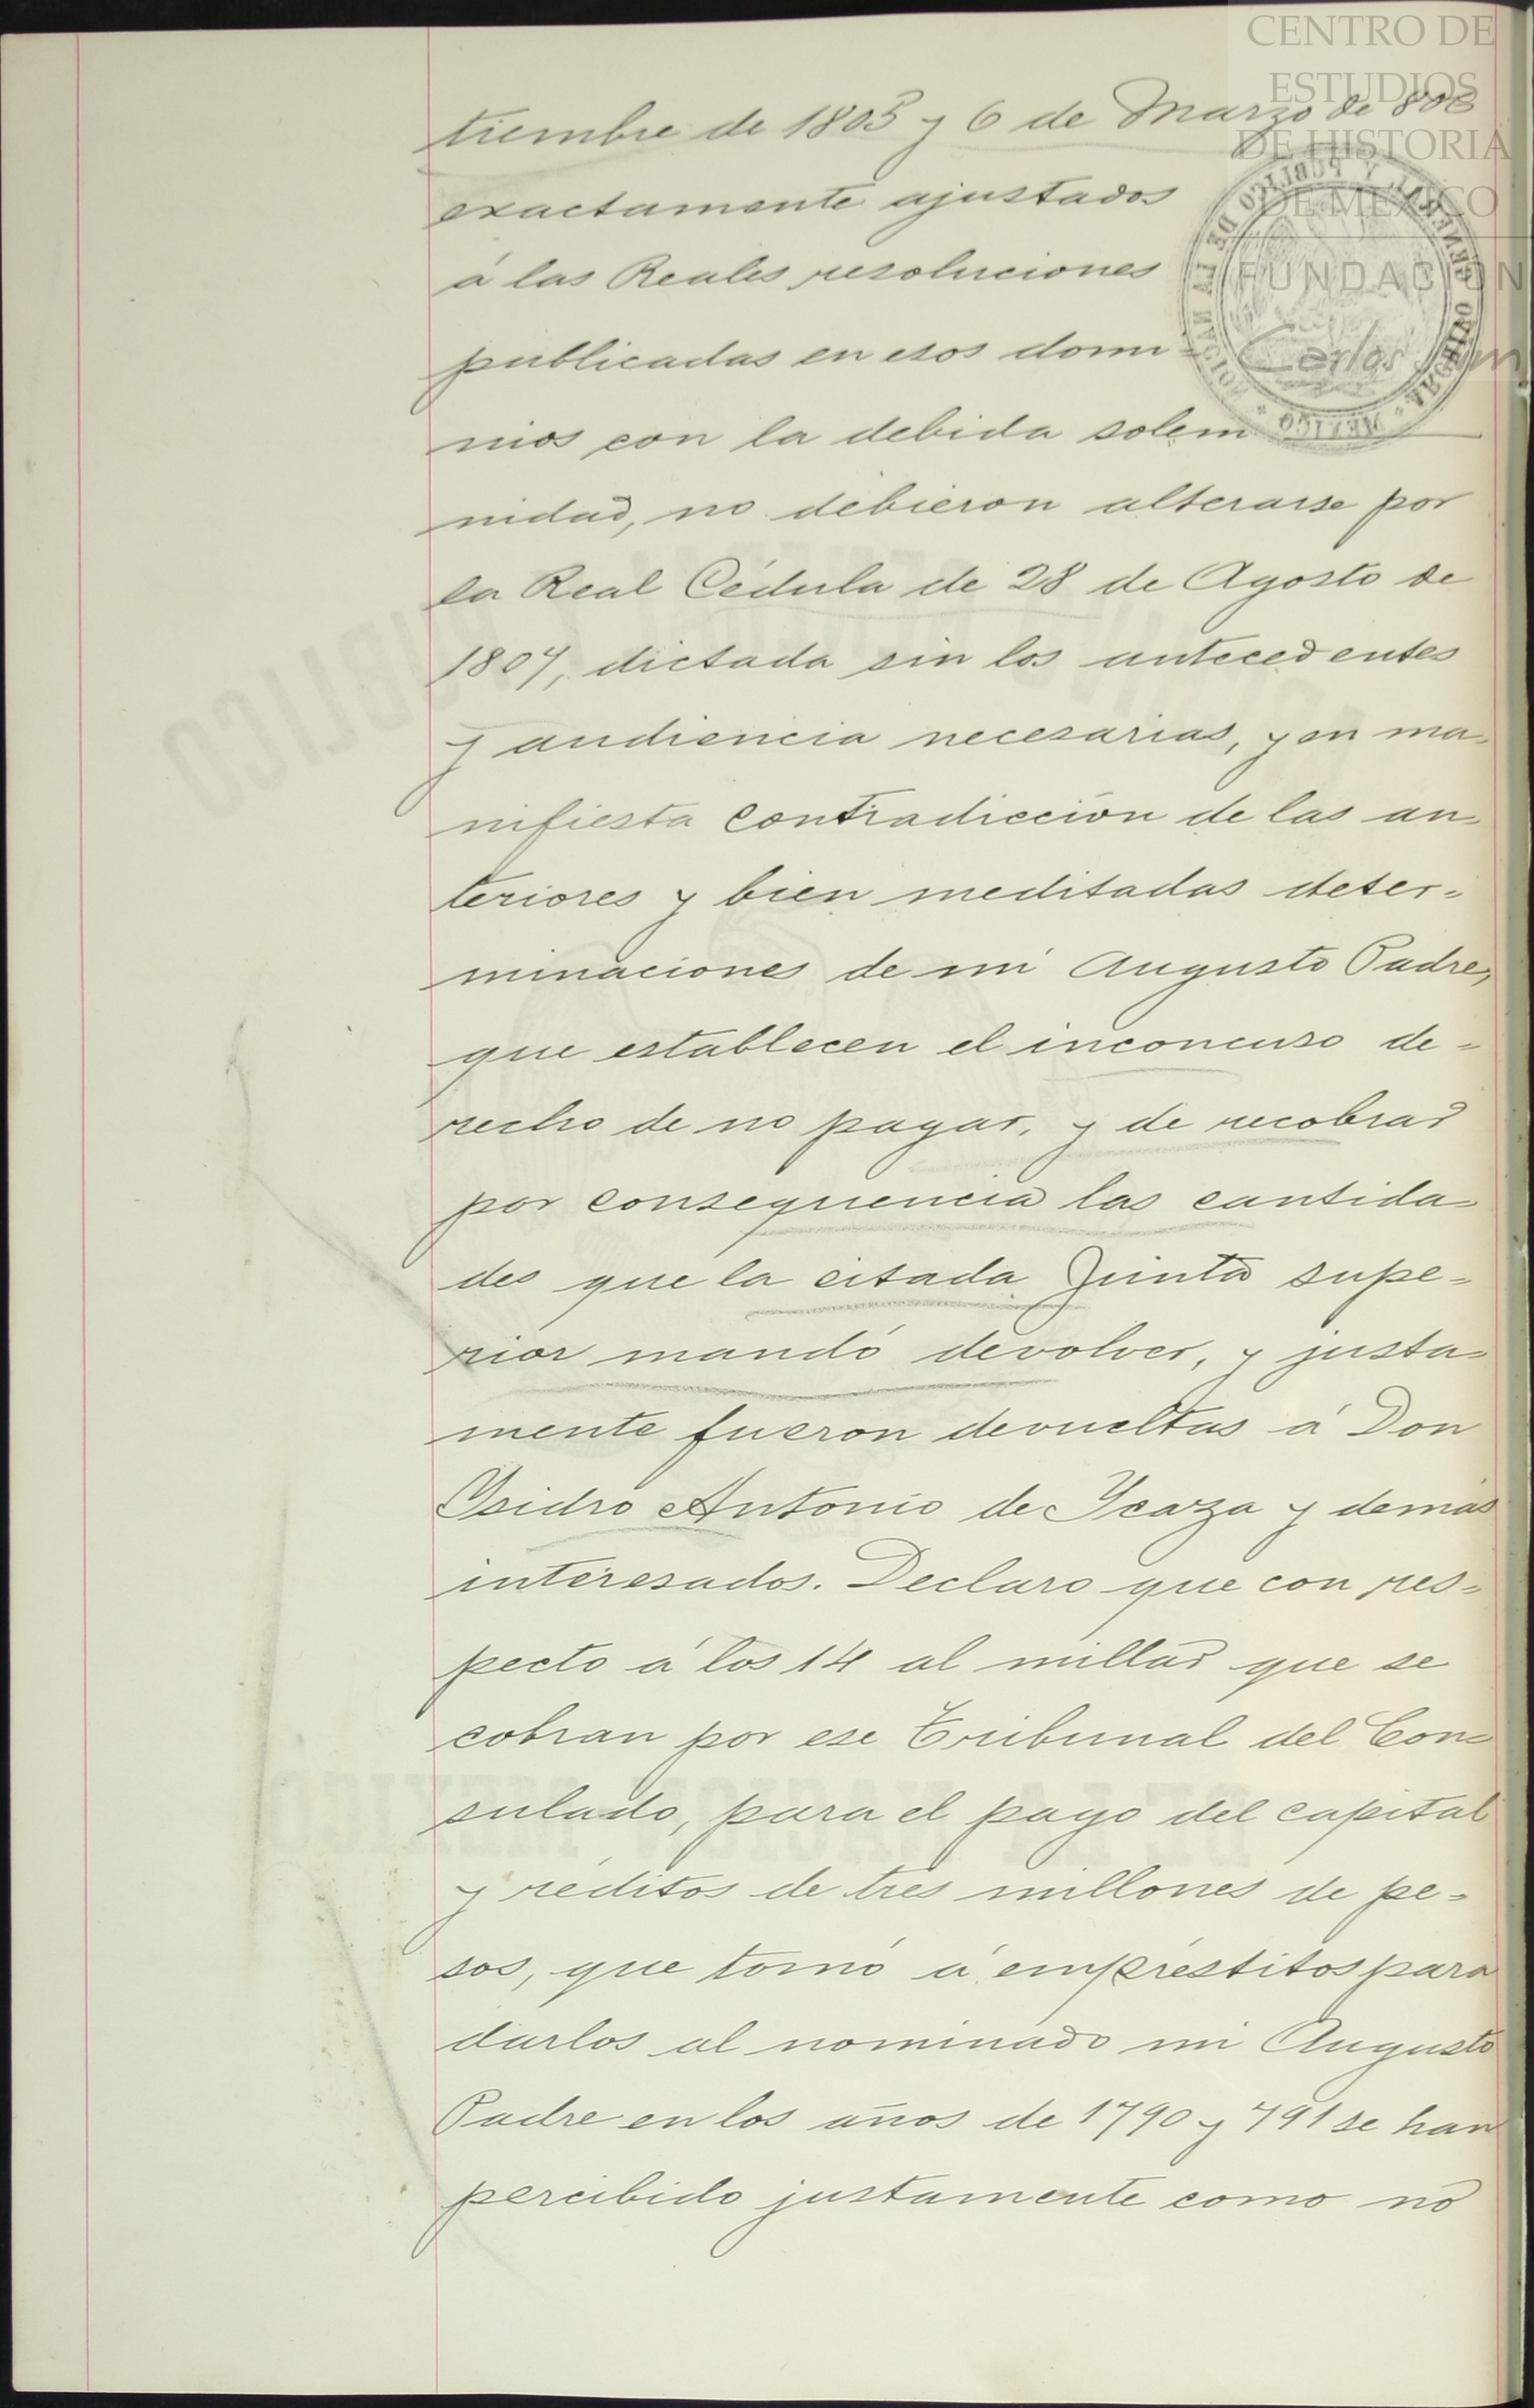 CENTRO DE
ESTUDIOS
DE HISTORIA
DE MEXICO
FUNDACION
Carlos
tiembre de 1805 y 6 de Marzo de 806
exactamente ajustados
á las Reales resoluciones
publicadas en esos domi-
nios con la debida solem
nidad, no debieron alterarse por
la Real Cédula de 28 de Agosto de
1807, dictada sin los antecedentes
y audiencia necesarias, y en ma-
nifiesta contradicción de las an-
teriores y bien meditadas deter-
minaciones de mi Augusto Padre,
que establecen el inconcuso de-
recho de no pagar, y de recobrar
por consequencia las cantida-
des que la citada Junta supe-
rior mandó devolver, y justa-
mente fueron devueltas á Don
Ysidro Antonio de Ycaza y demás
interesados. Declaro que con res-
pecto á los 14 al millar que se
cobran por ese Tribunal del Con-
sulado, para el pago del capital
y réditos de tres millones de pe-
sos, que tomó á empréstitos para
darlos al nominado mi Augusto
Padre en los años de 1790 y 791 se han
percibido justamente como no